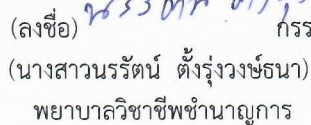 (ลงชื่อ) นรรัตน์ กรร
(นางสาวนรรัตน์ ตั้งรุ่งวงษ์ธนา)
พยาบาลวิชาชีพชำนาญการ